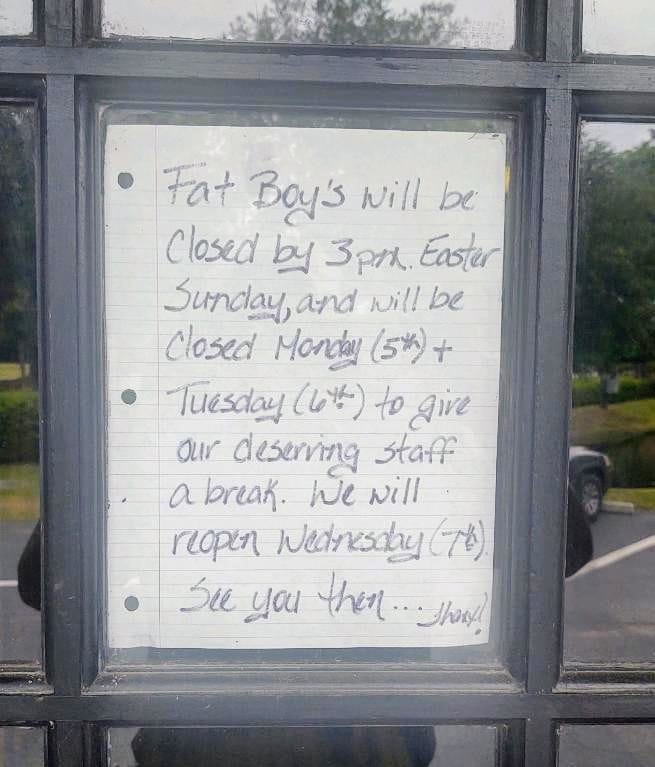 Fat Boy's will be
Closed by 3pm. Easter
Sunday, and will be
Closed Monday (5th) +
Tuesday (6th) to give
our deserving staff
a break. We will
reopen Wednesday (7th).
See you then... Thanx!